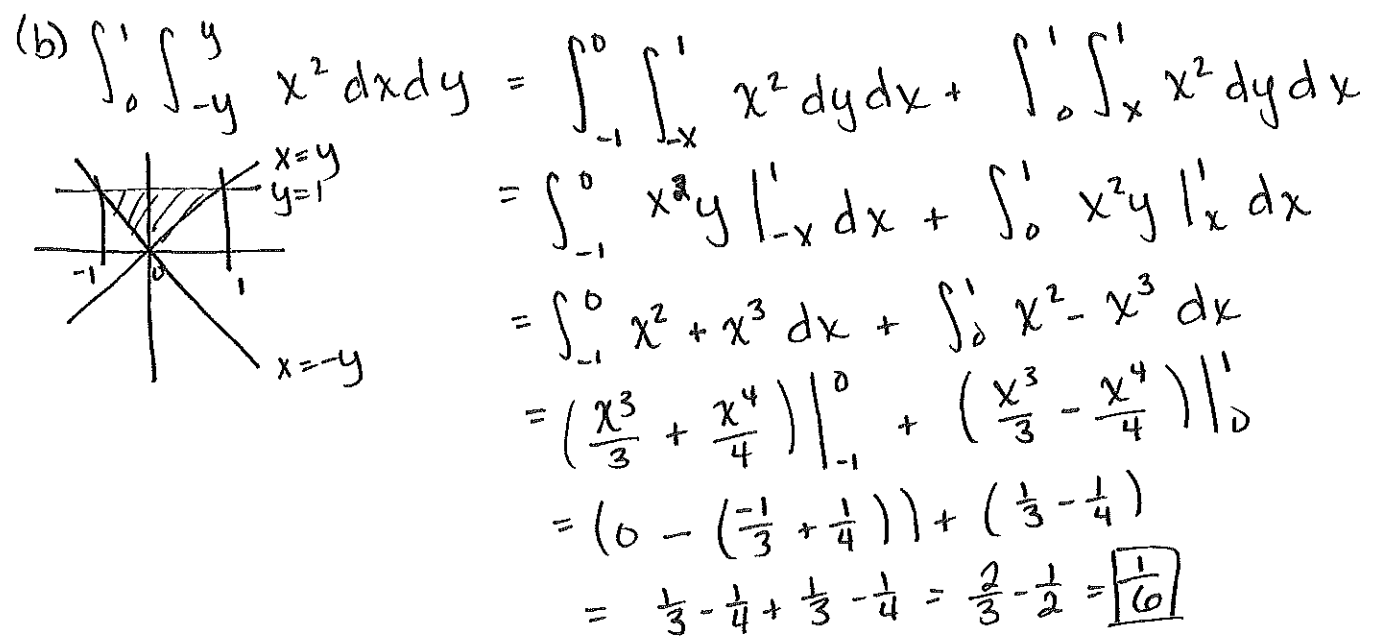 (b) ∫₀¹ ∫₋yʸ x² dx dy = ∫₋₁⁰ ∫₋ₓ¹ x² dy dx + ∫₀¹ ∫ₓ¹ x² dy dx
x=y
y=1
-1 0 1
x=-y
= ∫₋₁⁰ x²y |₋ₓ¹ dx + ∫₀¹ x²y |ₓ¹ dx
= ∫₋₁⁰ x² + x³ dx + ∫₀¹ x² - x³ dx
= (x³/3 + x⁴/4)|₋₁⁰ + (x³/3 - x⁴/4)|₀¹
= (0 - (-1/3 + 1/4)) + (1/3 - 1/4)
= 1/3 - 1/4 + 1/3 - 1/4 = 2/3 - 1/2 = 1/6